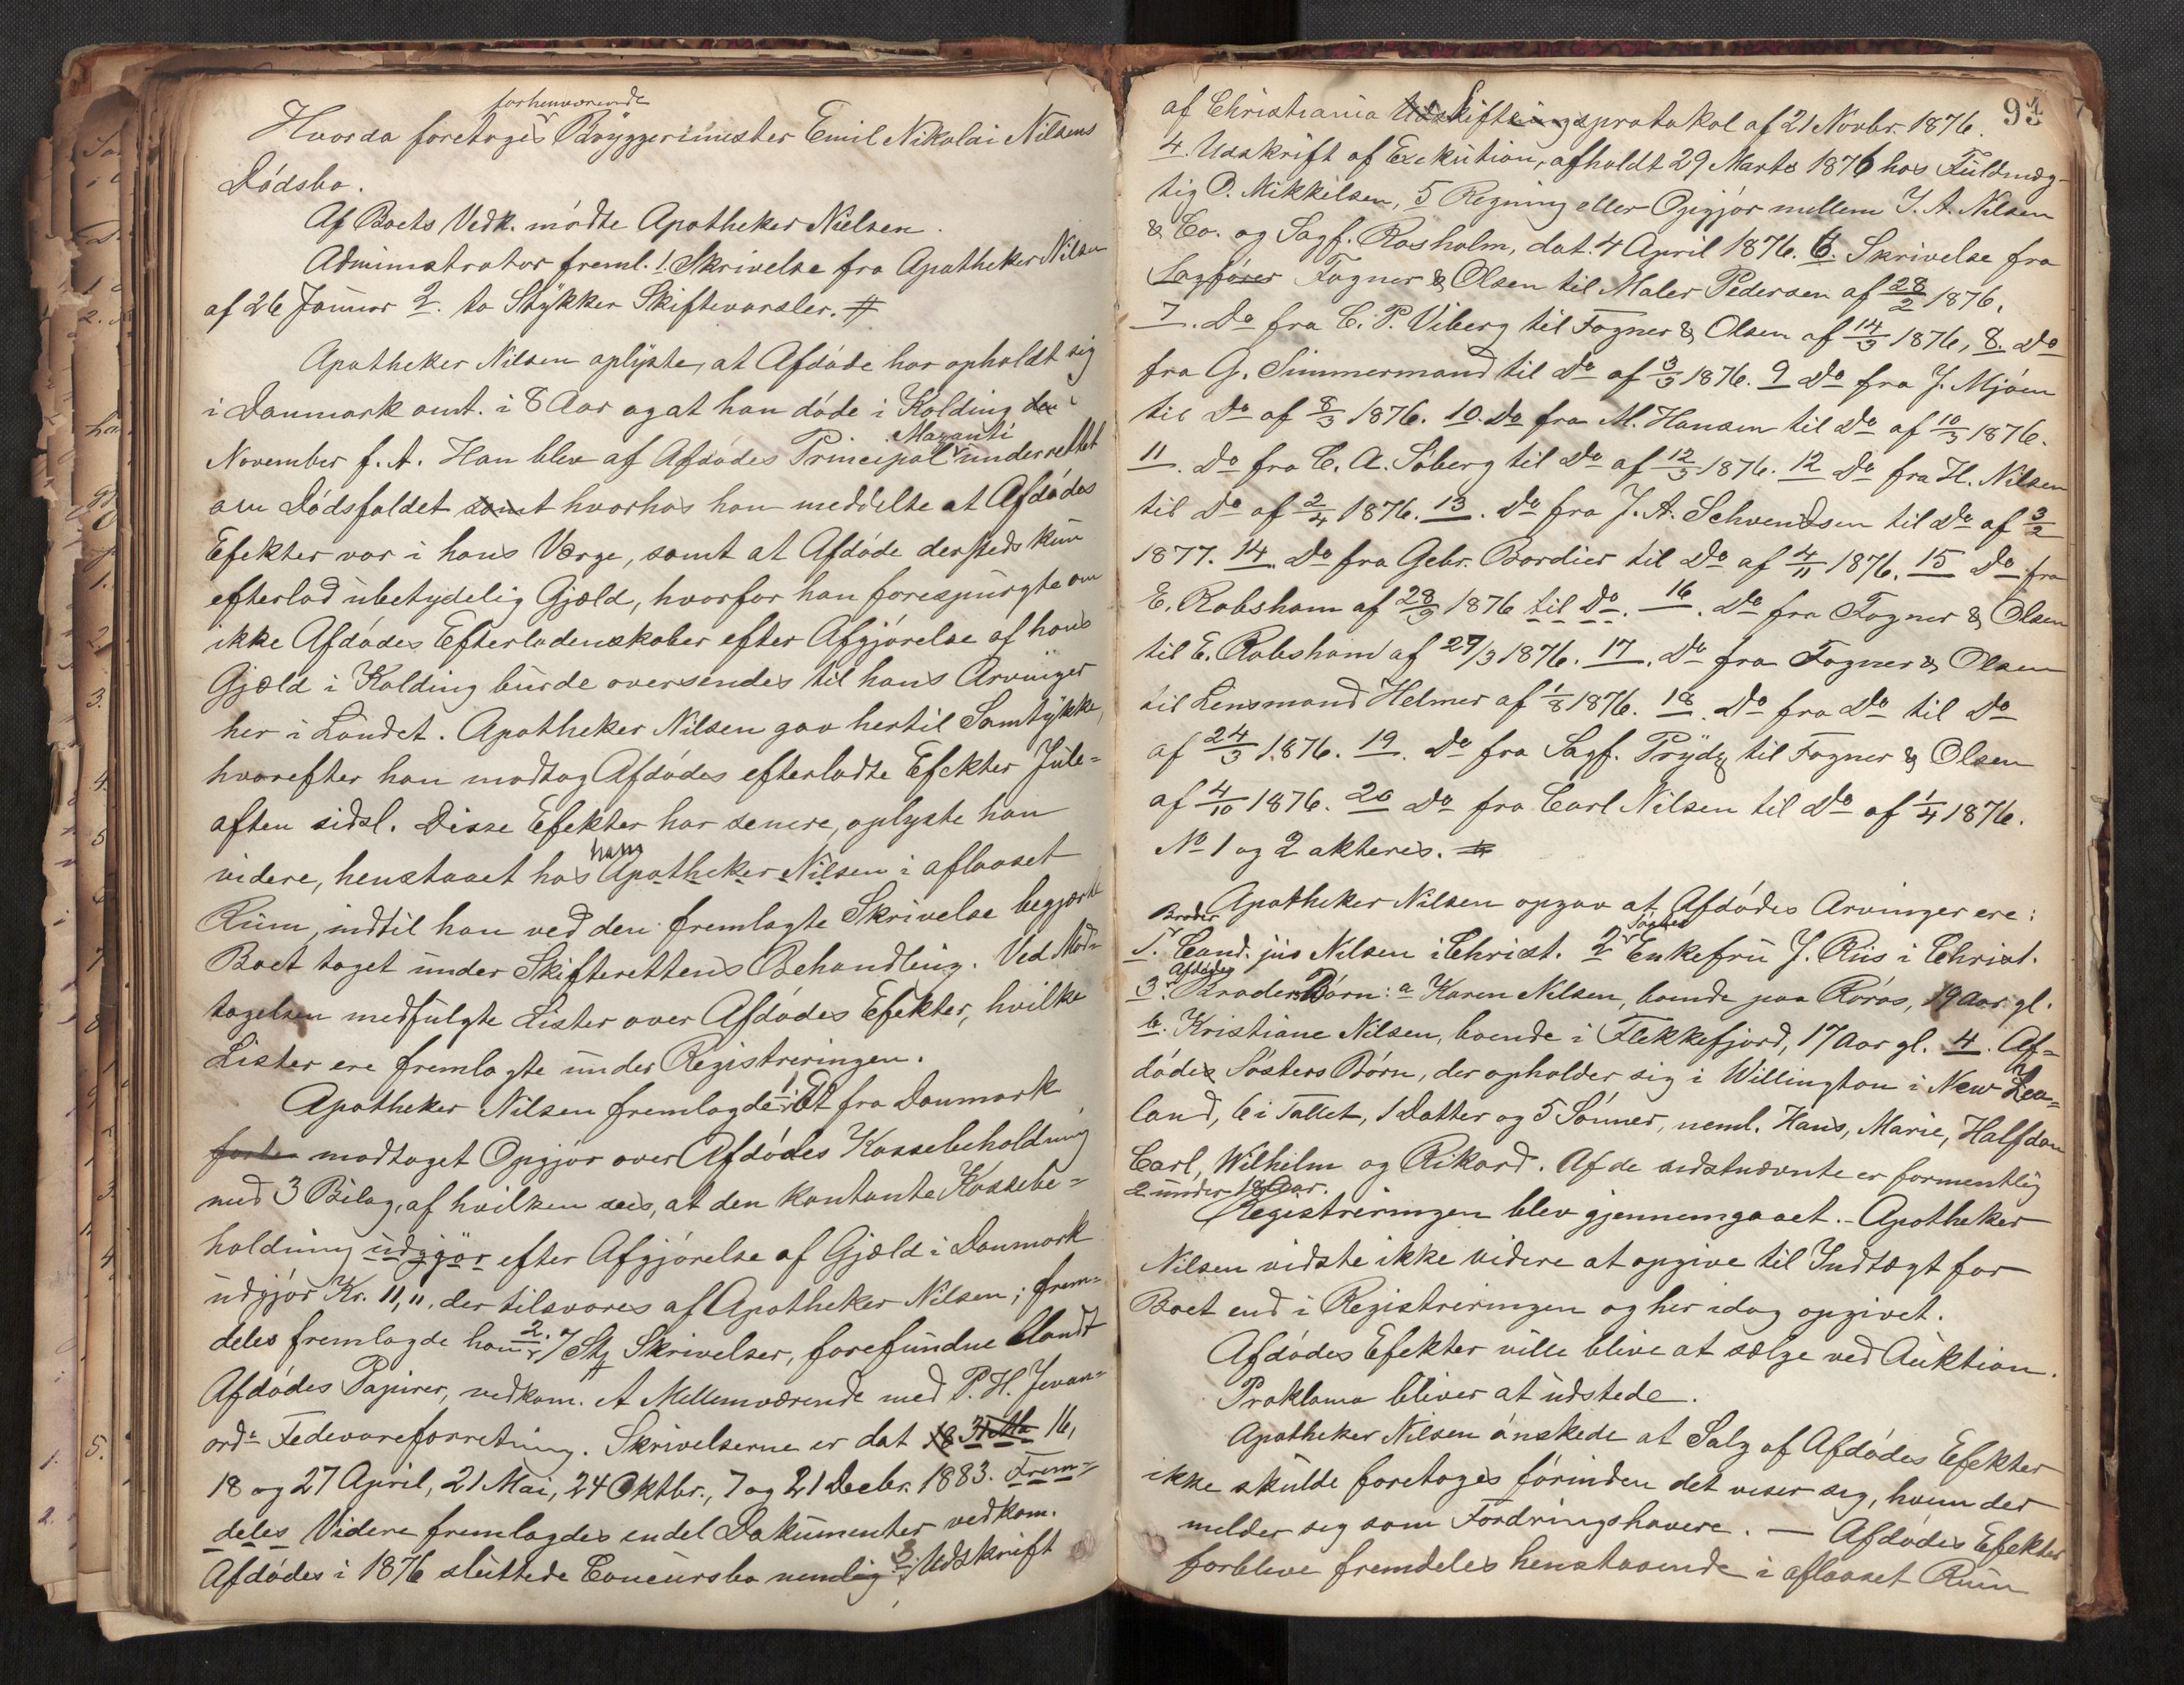 forhenværende
Hvorda foretoges Bryggerimester Emil Nikolai Nilsens
Dødsbo.
Af Boets Vedk. mødte Apotheker Nielsen.
Administrator freml. 1. Skrivelse fra Apotheker Nilsen
af 26 Januar 2. to Stykker Skiftevarsler. #
Apotheker Nilsen oplyste, at Afdøde har opholdt sig
i Danmark omt. i 8 Aar og at han døde i Kolding den i
Mazanti
November f. A. Han blev af Afdødes Principal underrettet
om Dødsfaldet samt hvorhos han meddelte at Afdødes
Efekter var i hans Værge, samt at Afdøde dersteds kun
efterlod ubetydelig Gjæld, hvorfor han forespurgte om
ikke Afdødes Efterladenskaber efter Afgjørelse af hans
Gjæld i Kolding burde oversendes til hans Arvinger
her i Landet. Apotheker Nilsen gav hertil Samtykke,
hvorefter han modtog Afdødes efterladte Efekter Jule=
aften sidsl. Disse Efekter har senere, oplyste han
ham
videre, henstaaet hos Apotheker Nilsen i aflaaset
Rum, indtil han ved den fremlagte Skrivelse begjærte
Boet taget under Skifterettens Behandling. Ved Mod=
tagelsen medfulgte Lister over Afdødes Efekter, hvilke
Lister ere fremlagte under Registreringen.
Apotheker Nilsen fremlagde 1. Et fra Danmark
modtaget Opgjør over Afdødes Kassebeholdning
med 3 Bilag, af hvilken sees, at den kontante Kassebe=
holdning udgjør efter Afgjørelse af Gjæld i Danmark
udgjør Kr. 11,11. der tilsvares af Apotheker Nilsen; frem=
deles fremlagde han 2. 7 Stk Skrivelser, forefundne blandt
Afdødes Papirer, vedkom. et Mellemværende med P. H.
ords Fedevareforretning. Skrivelserne er dat 16,
18 og 27 April, 21 Mai, 24 Oktbr., 7 og 21 Decbr. 1883. Frem=
deles Videre fremlagdes endel Dokumenter vedkom.
Afdødes i 1876 sluttede Concursbo nemlig 3. Udskrift
94
af Christiania Skifteprotokol af 21 Novbr. 1876.
4. Udskrift af Exekution, afholdt 29 Marts 1876 hos Fuldmæg-
tig O. Mikkelsen, 5 Regning eller Opgjør mellem J. A. Nilsen
& Co. og Sagf. Rosholm, dat. 4 April 1876. 6. Skrivelse fra
Sagfører Fogner & Olsen til Maler Pedersen af 28/2 1876.
7. Do fra C. P. Viberg til Fogner & Olsen af 14/3 1876, 8. Do
fra G. Simmermand til Do af 3/3 1876. 9 Do fra J. Mjøen
til Do af 8/3 1876. 10. Do fra M. Hansen til Do af 10/3 1876.
11. Do fra C. A. Søberg til Do af 12/3 1876. 12 Do fra H. Nilsen
til Do af 2/4 1876. 13. Do fra J. A. Schvendsen til Do af 3/2
1877. 14. Do fra Gebr. Bordier til Do af 4/11 1876. 15 Do fra
E. Robsham af 28/3 1876 til Do. 16. Do fra Fogner & Olsen
til E. Robsham af 27/3 1876. 17. Do fra Fogner & Olsen
til Lensmand Helmer af 1/8 1876. 18. Do fra Do til Do
af 24/3 1876. 19. Do fra Sagf. Prydz til Fogner & Olsen
af 4/10 1876. 20 Do fra Carl Nilsen til Do af 1/4 1876.
No 1 og 2 akteres. #
Apotheker Nilsen opgav at Afdødes Arvinger ere:
Broder Søster
1. Cand. jur Nilsen i Christ. 2 Enkefru J. Riis i Christ.
Afdødes
3. Broders Børn: a Karen Nilsen, boende paa Røros, 19 Aar gl.
b. Kristiane Nilsen, boende i Flekkefjord, 17 Aar gl. 4. Af=
dødes Søsters Børn, der opholder sig i Willington i New Zea=
land, 6 i Tallet, 1 Datter og 5 Sønner, neml. Hans, Marie, Halfdan
Carl, Wilhelm og Rikard. Af de sidstnævnte er formentlig
2 under 18 Aar.
Registreringen blev gjennemgaaet. - Apotheker
Nilsen vidste ikke videre at opgive til Indtægt for
Boet end i Registreringen og her idag opgivet.
Afdødes Efekter ville blive at sælge ved Auktion.
Proklama bliver at udstede.
Apotheker Nilsen ønskede at Salg af Afdødes Efekter
ikke skulde foretages førinden det viser seg, hvem der
melder seg som Fordringshavere. — Afdødes Efekter
forblive fremdeles henstaaende i aflaaset Rum